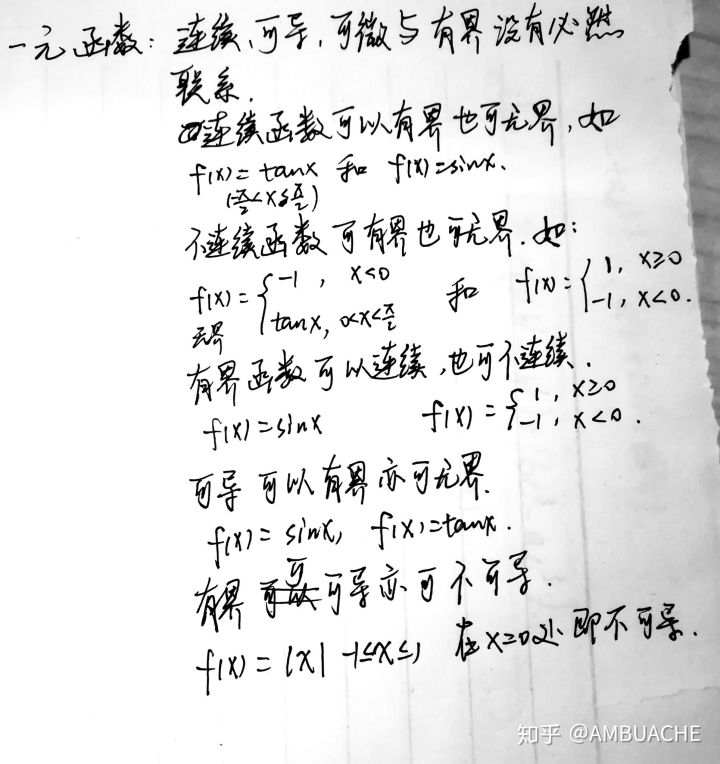 一元函数：连续、可导、可微与有界没有必然
联系.
连续函数可以有界也可无界，如
f(x)=tanx 和 f(x)=sinx.
(-π/2<x<π/2)
不连续函数可有界也可无界.如：
f(x)={-1, x<0 和 f(x)={1, x≥0
无界 tanx, 0<x<π/2 -1, x<0.
有界函数可以连续,也可不连续.
f(x)=sinx f(x)={1, x≥0
-1, x<0.
可导可以有界亦可无界.
f(x)=sinx, f(x)=tanx.
有界可可导亦可不可导.
f(x)=|x| -1≤x≤1 在x=0处即不可导.
知乎 @AMBUACHE